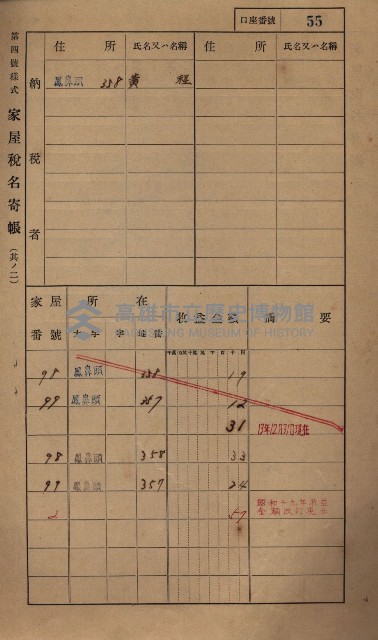 口座番號 55
第四號樣式 家屋稅名寄帳 (其ノ二)
納稅者
住所 氏名又ハ名稱 住所 氏名又ハ名稱
鳳鼻頭 358 黃 程
家屋番號 所在 摘要
大字 字 地番
高雄市立歷史博物館
KAOHSIUNG MUSEUM OF HISTORY
98 鳳鼻頭 358 19
99 鳳鼻頭 357 12
31 19年12月31日現在
98 鳳鼻頭 358 33
99 鳳鼻頭 357 24
57